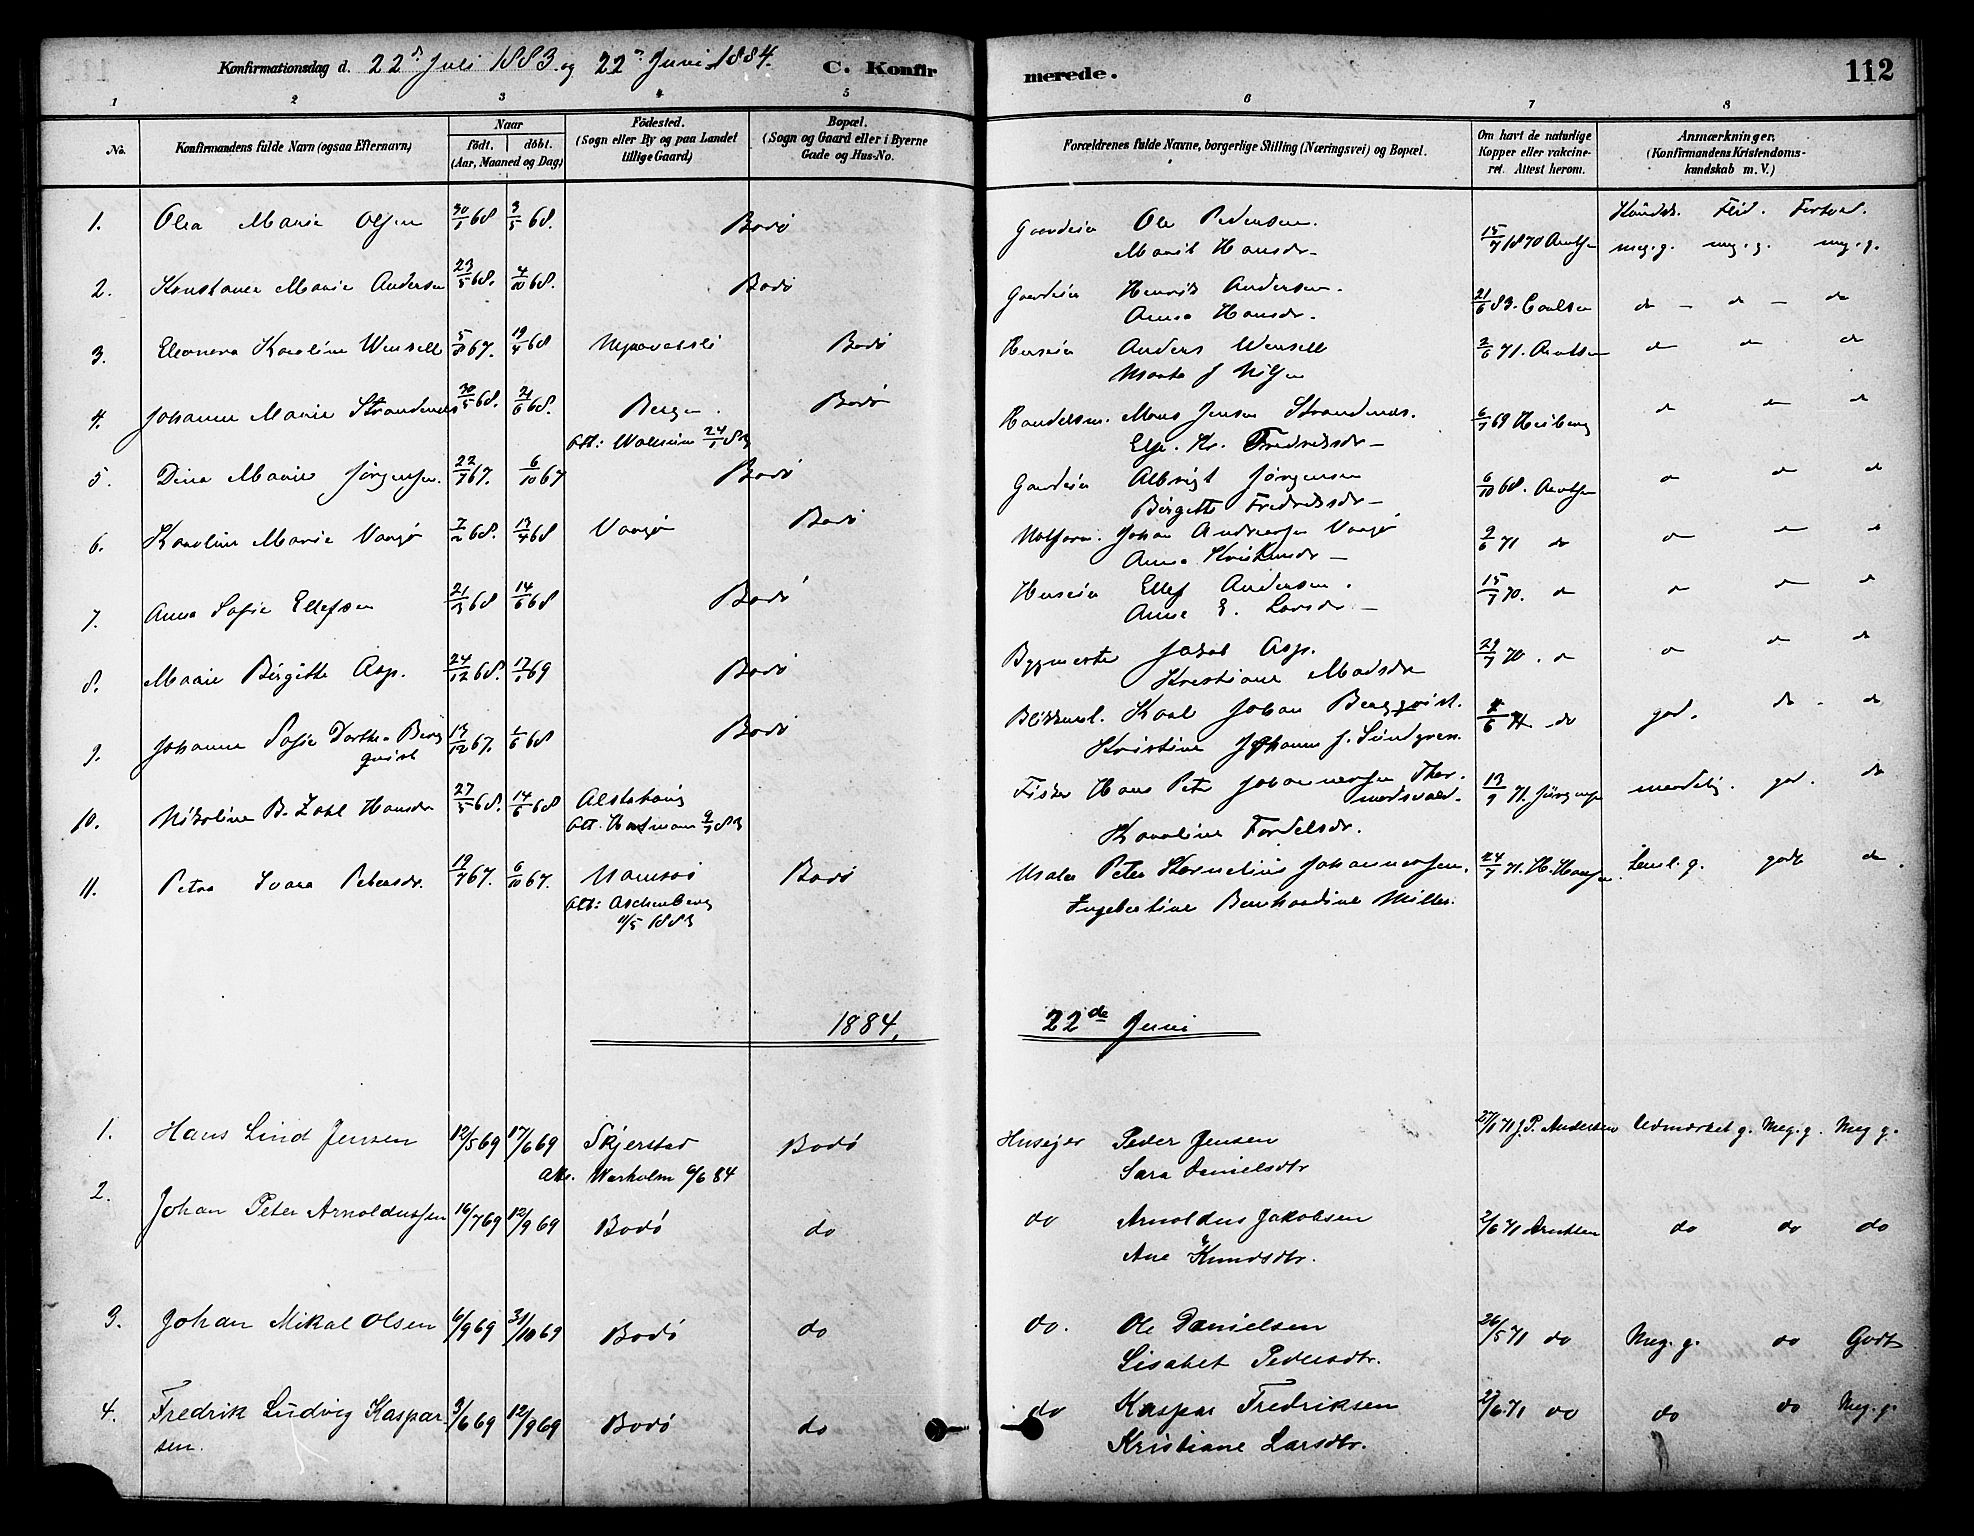 Konfirmationsdag d. 22de Juli 1883 og 22de Juni 1884. C. Konfirmerede. 112
1 2 3 4 5 6 7 8
No. Konfirmandens fulde Navn (ogsaa Efternavn) Naar født. døbt. (Aar, Maaned og Dag) Fødested. (Sogn eller By og paa Landet tillige Gaard) Bopæl. (Sogn og Gaard eller i Byerne Gade og Hus-No. Forældrenes fulde Navne, borgerlige Stilling (Næringsvei) og Bopæl. Om havt de naturlige Kopper eller vakcineret. Attest herom. Anmærkninger. (Konfirmandens Kristendomskundskab m. V.)
Kundsk. Flid. Forhol.
1. Olea Marie Olsen 30/1 68 3/5 68. Bodø Gaardeier Ole Pedersen. 15/7 1870 Arntsen meg. g. mg. g. mg. g.
Marit Hansdr.
2. Konstance Marie Andersen 23/5 68. 4/10 68. Bodø Gaardeier Henrik Andersen. 21/6 83. Coulsen do - do - do
Anna Hansdr.
3. Eleonora Karoline Wensell 5/8 67. 19/4 68 Bodø Huseier Anders Wensell 2/6 71. Arntsen do do do
Marta J Nilsen
4. Johanne Marie Strandenæs 30/5 68. 21/6 68. Bergen. Bodø Handelsm. Mons Jensen Strandenæs. 6/7 69 Heiberg do do do
Att: 24/1 83 Else. Kr. Fredriksdr
5. Dina Marie Jørgensen. 22/7 67. 6/10 67 Bodø Gaardeier Albrigt Jørgensen 6/10 68. Arntsen do do do
Birgitte Fredriksdr
6. Karoline Marie Vaagø 7/2 68. 13/4 68 Vaagø Bodø Johan Andreasen Vaagø 2/6 71 do do do do
Anna
7. Anna Sofie Ellefsen 21/3 68 14/6 68 Bodø Huseier Ellef Andersen. 15/7 70. do do do do
Anne E. Larsdr
8. Marie Birgitte Asp. 24/12 68. 17/1 69 Bodø Bygmester Jakob Asp. 29/7 70. do do do do
Kristiane Madsdr
9. Johanne Sofie Dorthea Bergqvist 13/12 67. 1/6 68 Bodø Blikkensl. Karl Johan Bergqvist. do god. do - do
Kristine Johanne J. Sundgren.
10. Nikoline B. Zahl Hansdr 27/5 68. 14/6 68 Alstahaug Fisker Hans Peter Johannessen Thormodsvold. 13/9 71. Jürgensen maadelig. god. do
Att. Hartmann 9/7 83 Karoline Tordelsdr.
11. Petra Ivara Petersdr. 19/7 67. 6/10 67. Namsos Bodø Maler Peter Kornelius Johannessen. 24/7 71. H. Hansen Teml. g. godt do
Att: Aschenberg 11/5 1883 Ingebertine Bernhardine Miller.
1884. 22de Juni
1. Hans Lind Jensen 12/5 69 17/6 69 Skjerstad Bodø Husejer Peder Jensen 27/6 71 J. P. Andersen Udmærket g. Meg. g. Meg g.
Att. Warholm 6/6 84 Sara Danielsdtr
2. Johan Peter Arnoldussen 16/7 69 12/9 69 Bodø do do Arnoldus Jakobsen 2/6 71 Arentsen do do do
Ane Knudsdtr.
3. Johan Mikal Olsen 6/9 69 31/10 69 Bodø do do. Ole Danielsen 26/5 71 do Meg. g. do Godt
Lisabet Pedersdtr.
4. Fredrik Ludvig Kasparsen. 3/6 69 12/9 69 Bodø do do Kaspar Fredriksen 2/6 71 do do do Meg. g.
Kristiane Larsdtr.